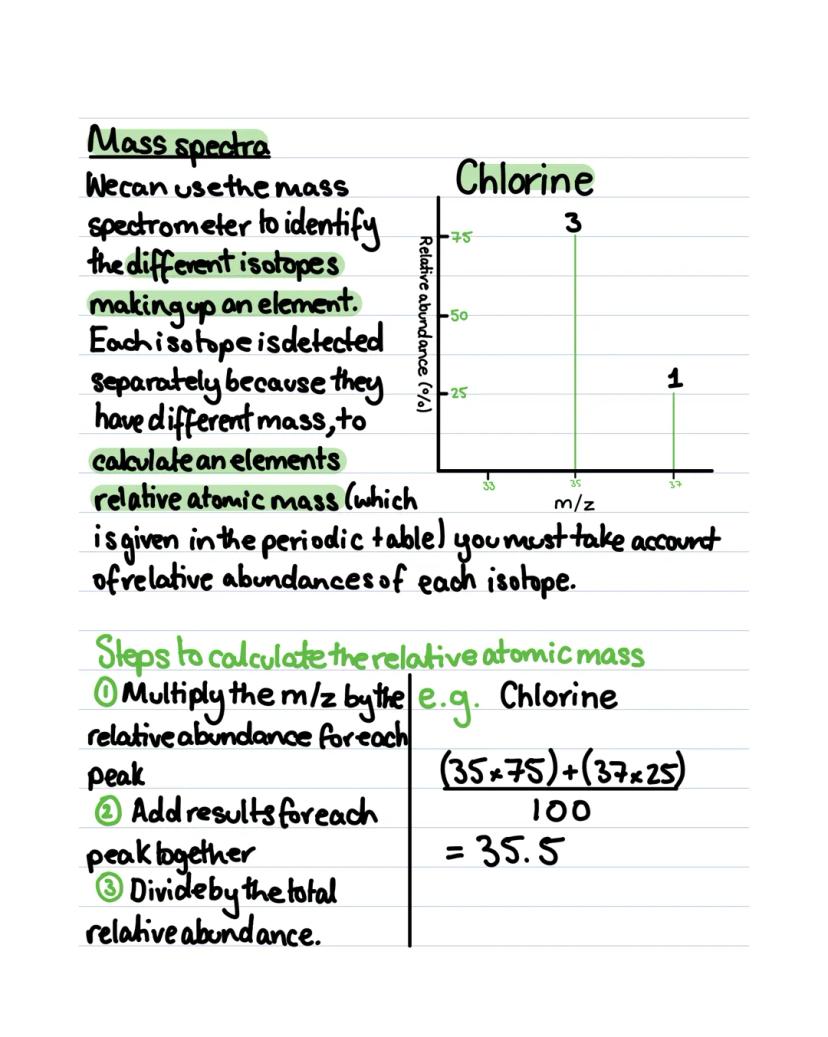 Mass spectra
We can use the mass
spectrometer to identify
the different isotopes
making up an element.
Each isotope is detected
separately because they
have different mass, to
calculate an elements
relative atomic mass (which
is given in the periodic table) you must take account
of relative abundances of each isotope.
Chlorine
3
75
Relative abundance (%)
50
1
25
33 35 37
m/z
Steps to calculate the relative atomic mass
① Multiply the m/z by the
relative abundance for each
peak
② Add results for each
peak together
③ Divide by the total
relative abundance.
e.g. Chlorine
(35×75)+(37×25)
100
= 35.5